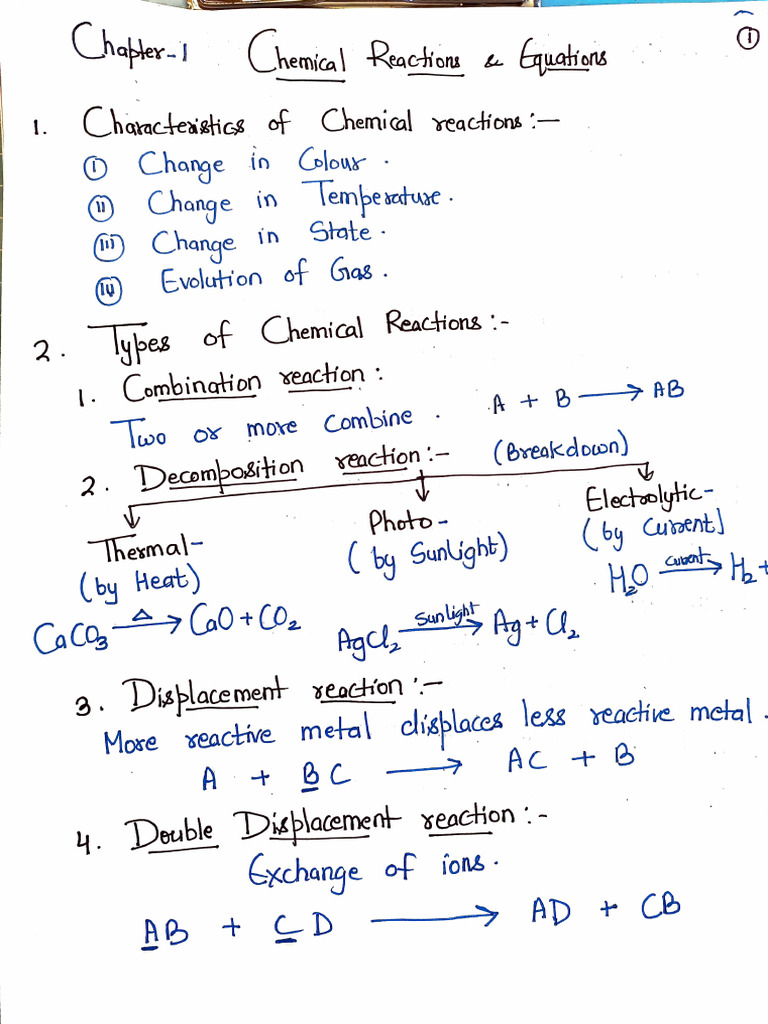 ①
Chapter-1 Chemical Reactions & Equations
1. Characteristics of Chemical reactions :-
(i) Change in Colour.
(ii) Change in Temperature.
(iii) Change in State.
(iv) Evolution of Gas.
2. Types of Chemical Reactions :-
1. Combination reaction :
Two or more combine. A + B ⟶ AB
2. Decomposition reaction :- (Breakdown)
Thermal- Photo- Electrolytic-
(by Heat) (by Sunlight) (by Current]
CaCO₃ —Δ→ CaO + CO₂ AgCl₂ —Sunlight→ Ag + Cl₂ H₂O —Current→ H₂ +
3. Displacement reaction :-
More reactive metal displaces less reactive metal.
A + BC ⟶ AC + B
4. Double Displacement reaction :-
Exchange of ions.
AB + CD ⟶ AD + CB